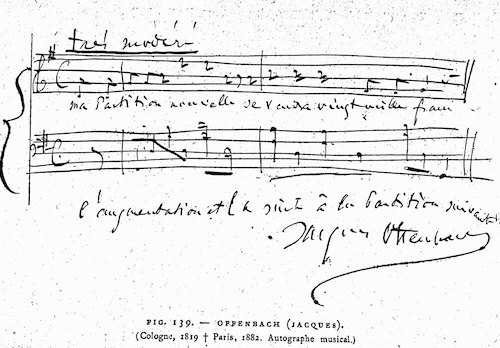 très modéré
ma partition nouvelle se vendra vingt mille fran
l'augmentation et la suite à la partition suivante
Jacques Offenbach
FIG. 139. — OFFENBACH (JACQUES).
(Cologne, 1819 † Paris, 1882. Autographe musical.)